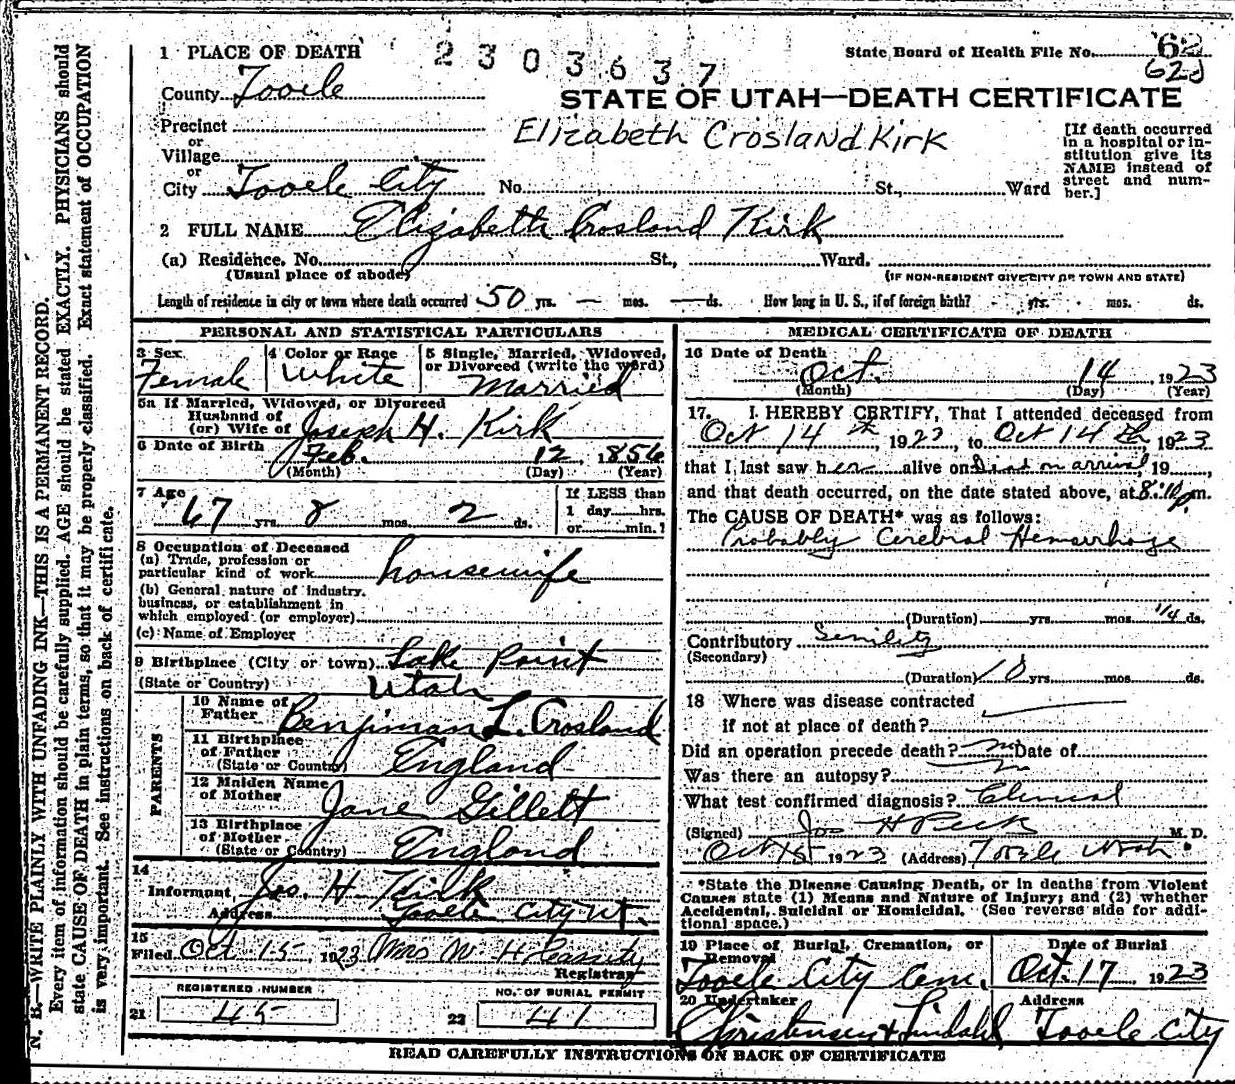 1 PLACE OF DEATH
2303637
State Board of Health File No. 62
62d
County Tooele
STATE OF UTAH—DEATH CERTIFICATE
Precinct
Elizabeth Crosland Kirk
or
Village
or
City Tooele City No. St., Ward
[If death occurred
in a hospital or in-
stitution give its
NAME instead of
street and num-
ber.]
2 FULL NAME Elizabeth Crosland Kirk
(a) Residence. No. St., Ward.
(Usual place of abode) (IF NON-RESIDENT GIVE CITY OR TOWN AND STATE)
Length of residence in city or town where death occurred 50 yrs. — mos. — ds. How long in U. S., if of foreign birth? yrs. mos. ds.
PERSONAL AND STATISTICAL PARTICULARS
3 Sex
Female
4 Color or Race
White
5 Single, Married, Widowed,
or Divorced (write the word)
Married
5a If Married, Widowed, or Divorced
Husband of
(or) Wife of Joseph H. Kirk
6 Date of Birth Feb. 12, 1856
(Month) (Day) (Year)
7 Age
67 yrs. 8 mos. 2 ds.
If LESS than
1 day hrs.
or min.?
8 Occupation of Deceased
(a) Trade, profession or
particular kind of work housewife
(b) General nature of industry,
business, or establishment in
which employed (or employer)
(c) Name of Employer
9 Birthplace (City or town) Lake Point
(State or Country) Utah
PARENTS
10 Name of
Father Benjiman L. Crosland
11 Birthplace
of Father
(State or Country) England
12 Maiden Name
of Mother Jane Gillett
13 Birthplace
of Mother
(State or Country) England
14
Informant Jos. H. Kirk
Address Tooele City Ut.
15
Filed Oct 15, 1923 Mrs W. H Cassity
Registrar
REGISTERED NUMBER
21 45
NO. OF BURIAL PERMIT
22 41
MEDICAL CERTIFICATE OF DEATH
16 Date of Death
Oct. 14, 1923
(Month) (Day) (Year)
17. I HEREBY CERTIFY, That I attended deceased from
Oct 14th, 1923, to Oct 14th, 1923
that I last saw her alive on Dead on arrival, 19
and that death occurred, on the date stated above, at 8:10 p.m.
The CAUSE OF DEATH* was as follows:
Probably Cerebral Hemorrhage
(Duration) yrs. mos. 1/4 ds.
Contributory Senility
(Secondary)
(Duration) 10 yrs. mos. ds.
18 Where was disease contracted
if not at place of death?
Did an operation precede death? no Date of
Was there an autopsy? no
What test confirmed diagnosis? Clinical
(Signed) Jos H Peck M. D.
Oct 15 1923 (Address) Tooele Utah
*State the Disease Causing Death, or in deaths from Violent
Causes state (1) Means and Nature of Injury; and (2) whether
Accidental, Suicidal or Homicidal. (See reverse side for addi-
tional space.)
19 Place of Burial, Cremation, or
Removal
Tooele City Cem.
Date of Burial
Oct. 17, 1923
20 Undertaker
Christensen & Lindahl
Address
Tooele City
READ CAREFULLY INSTRUCTIONS ON BACK OF CERTIFICATE
N. B.—WRITE PLAINLY WITH UNFADING INK—THIS IS A PERMANENT RECORD.
Every item of information should be carefully supplied. AGE should be stated EXACTLY. PHYSICIANS should
state CAUSE OF DEATH in plain terms, so that it may be properly classified. Exact statement of OCCUPATION
is very important. See instructions on back of certificate.